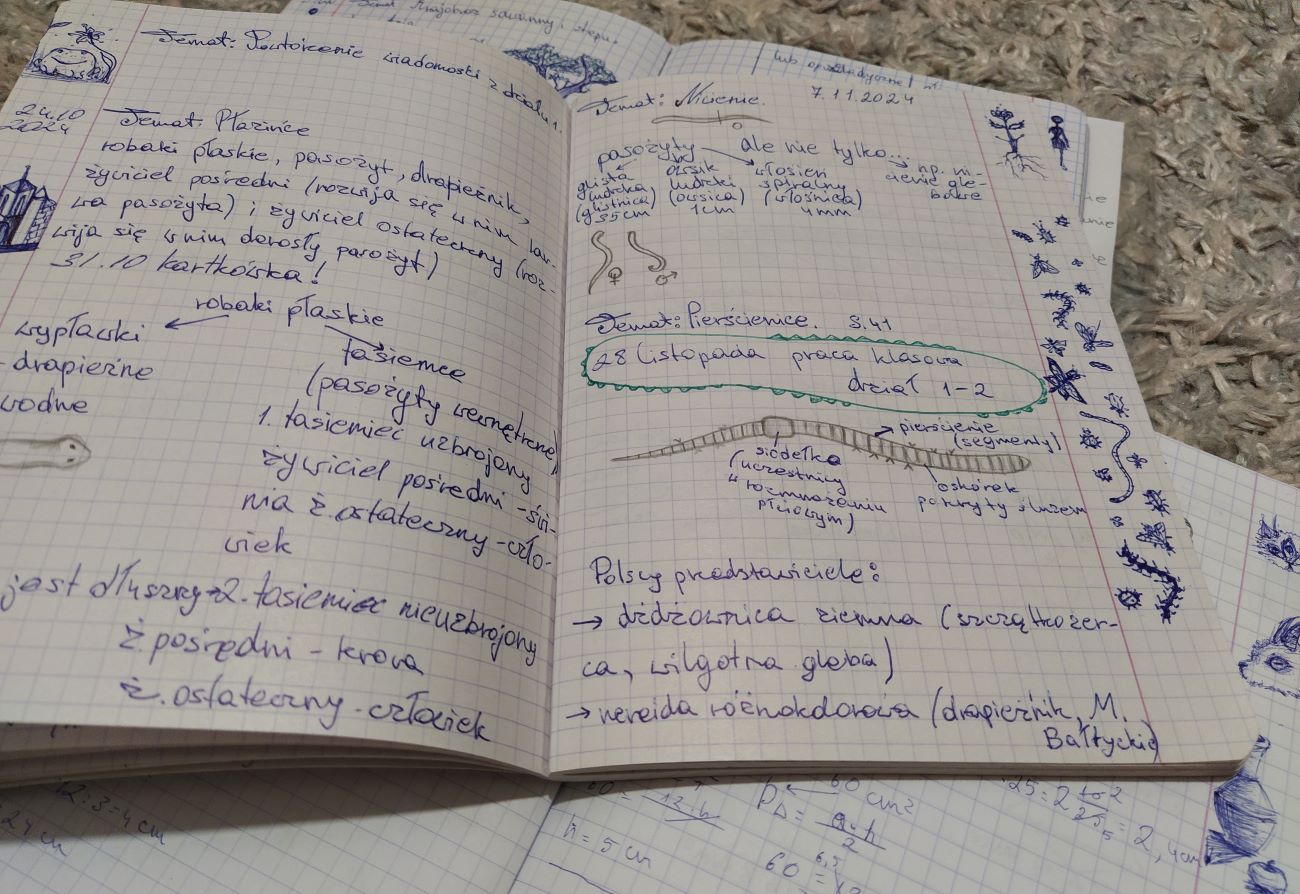 Temat: Powtórzenie wiadomości
z działu 1.
24.10
2024
Temat: Płazińce
robaki płaskie, pasożyt, drapieżnik,
żywiciel pośredni (rozwija się w nim lar-
wa pasożyta) i żywiciel ostateczny (roz-
wija się w nim dorosły pasożyt)
31.10 kartkówka!
robaki płaskie
wypławki
- drapieżne
wodne
tasiemce
(pasożyty wewnętrzne)
1. tasiemiec uzbrojony
żywiciel pośredni - świ-
nia ż. ostateczny - czło-
wiek
jest dłuszzy→2. tasiemiec nieuzbrojony
ż. pośredni - krowa
ż. ostateczny - człowiek
Temat: Nicienie.
7.11.2024
pasożyty
ale nie tylko...
glista
ludzka
(glistnica)
35cm
owsik
ludzki
(owsica)
1cm
włosień
spiralny
(włośnica)
4mm
np. ni-
cienie gle-
bowe
♀
♂
Temat: Pierścienice. S.41
28 listopada praca klasowa
dział 1-2
siodełko
(uczestniczy
w rozmnożeniu
płciowym)
pierścienie
(segmenty)
oskórek
pokryty śluzem
Polscy przedstawiciele:
→ dżdżownica ziemna (szczątkożer-
ca, wilgotna gleba)
→ nereida różnokolorowa (drapieżnik, M.
Bałtyckie)
Temat
sawanny i stepu.
lub
12:3=4 cm
24 cm
h = 5 cm
P△ = a·h
2
60 cm²
60 =